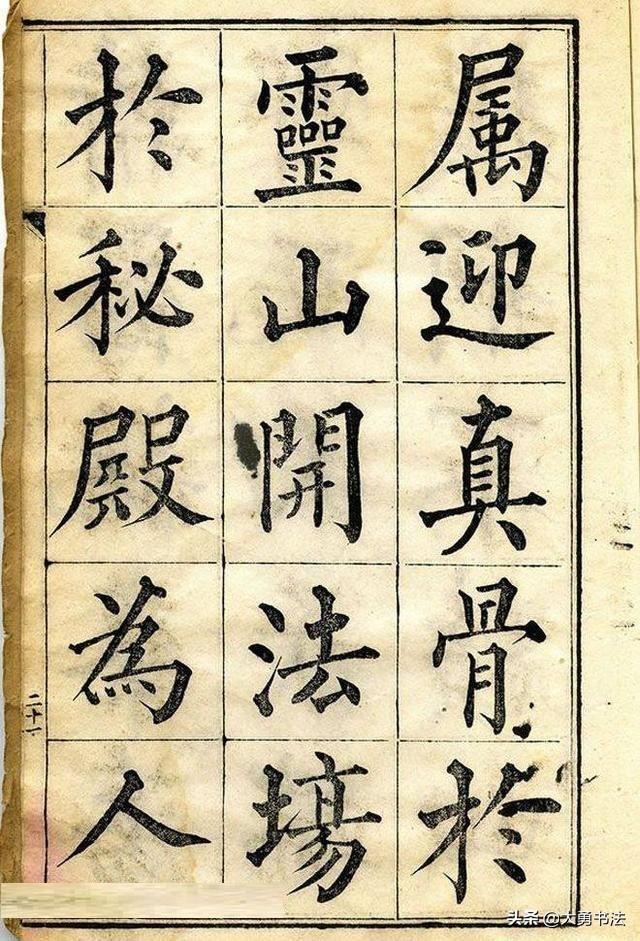 属迎真骨於
靈山開法場
於秘殿為人
二十一
头条@大勇书法